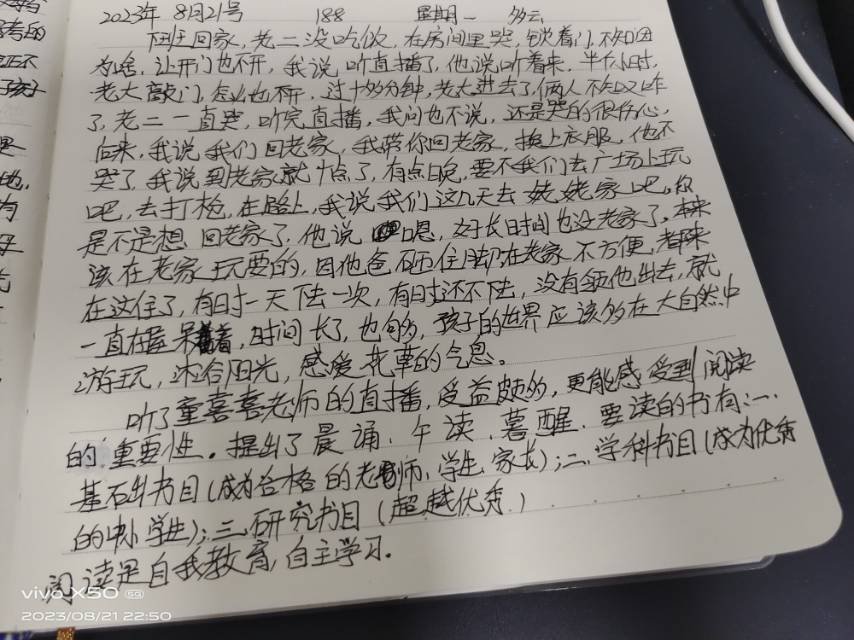 2023年 8月21号 188 星期一 多云
下班回家，老二没吃饭，在房间里哭，锁着门，不知因
为啥，让开门也不开，我说听直播了，他说听着来，半个小时，
老大敲门，怎么也不开，过十多分钟，老大进去了，俩人不知又咋
了，老二一直哭，听完直播，我问也不说，还是哭的很伤心，
后来，我说我们回老家，我带你回老家，换上衣服，他不
哭了，我说到老家就十点了，有点晚，要不我们去广场上玩
吧，去打枪，在路上，我说我们这几天去姥姥家吧，你
是不是想回老家了，他说嗯，好长时间也没老家了，本来
该在老家玩耍的，因他爸砸住脚在老家不方便，都来
在这住了，有时一天下去一次，有时还不下去，没有领他出去，就
一直在屋呆着，时间长了，也够，孩子的世界应该多在大自然中
游玩，沐浴阳光，感受花草的气息。
听了童喜喜老师的直播，受益颇多，更能感受到阅读
的重要性。提出了晨诵、午读、暮醒，要读的书有：一、
基石书目（成为合格的老师、学生、家长）；二、学科书目（成为优秀
的中小学生）；三、研究书目（超越优秀）
阅读是自我教育，自主学习．
vivo X50 5G
2023/08/21 22:50